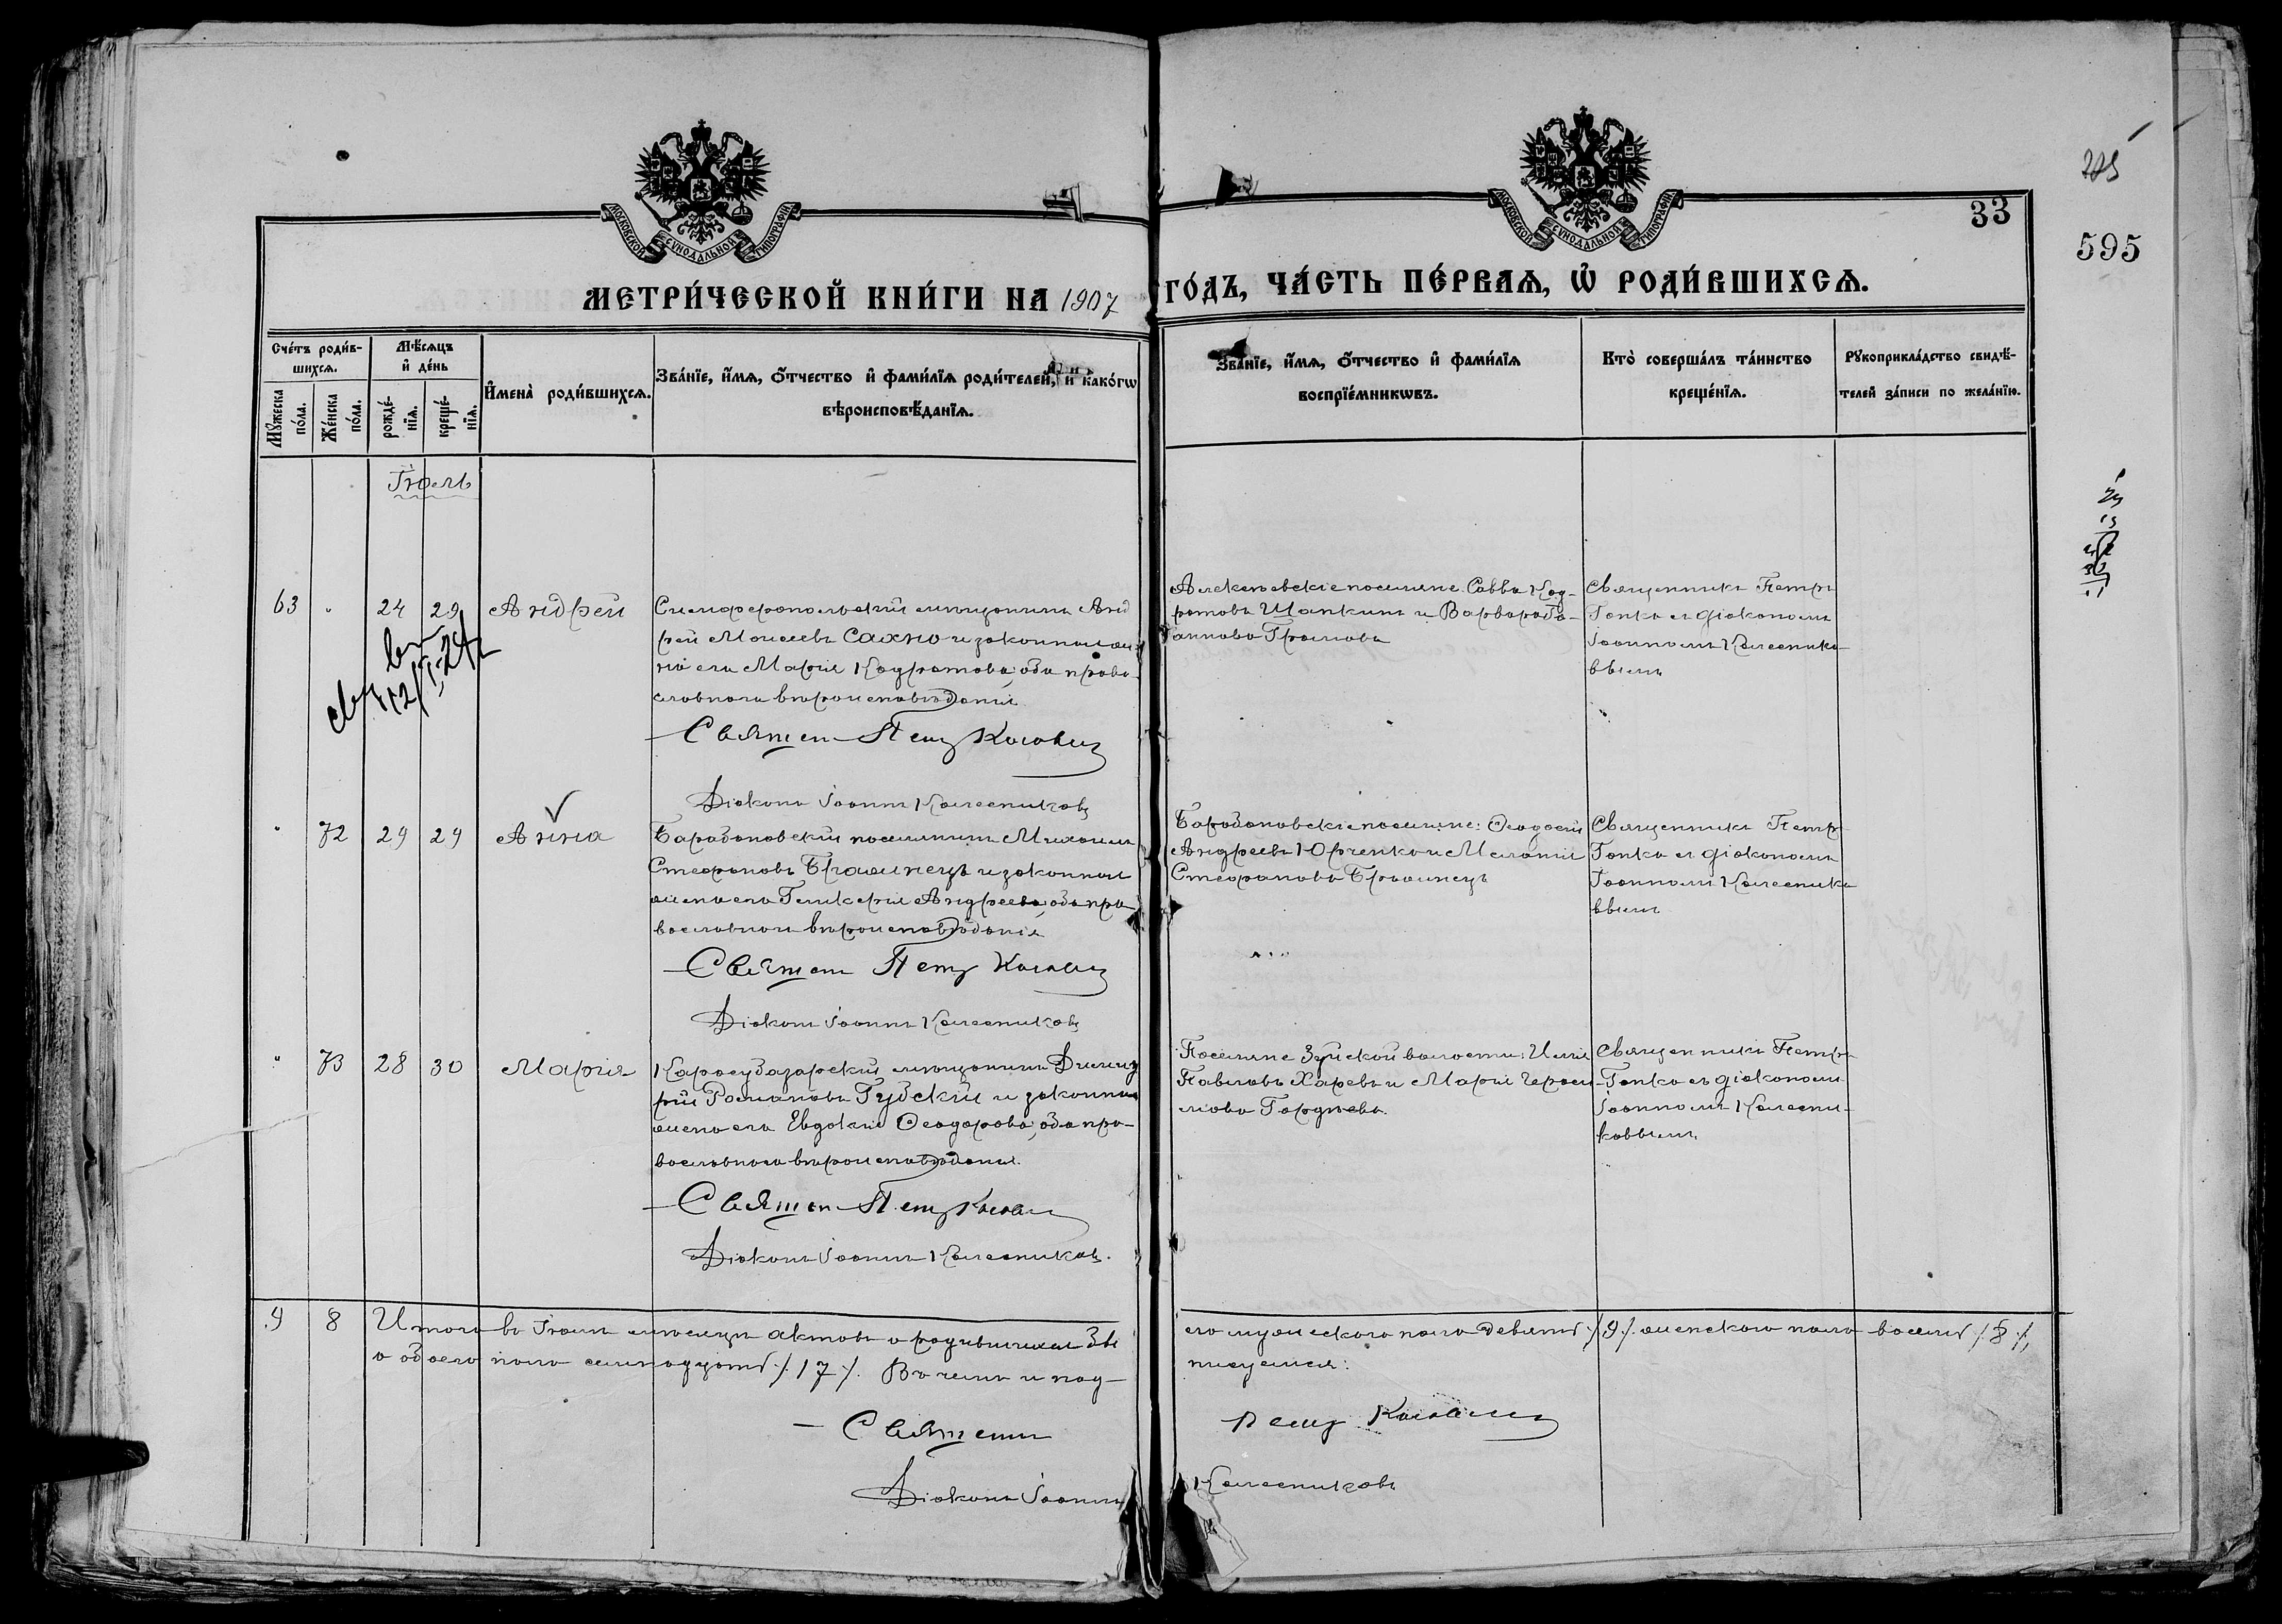 МОСКОВСКОЙ СѴНОДАЛЬНОЙ ТИПОГРАФІИ
МОСКОВСКОЙ СѴНОДАЛЬНОЙ ТИПОГРАФІИ
33
595
МЕТРИ́ЧЕСКОЙ КНИ́ГИ НА 1907 ГО́ДЪ, ЧА́СТЬ ПЕ́РВАѦ, Ѡ҆ РОДИ́ВШИХСѦ.
Сче́тъ роди́в-
шихсѧ.
Мꙋ́жеска по́ла.
Же́нска по́ла.
Мѣ́сѧцъ
и҆ де́нь
рожде́-
нїѧ.
креще́-
нїѧ.
И҆мена̀ роди́вшихсѧ.
Зва́нїе, и҆́мѧ, ѻ҆́тчество и҆ фами́лїѧ роди́телей, и҆ како́гѡ
вѣроисповѣ́данїѧ.
Зва́нїе, и҆́мѧ, ѻ҆́тчество и҆ фами́лїѧ
воспрїе́мникѡвъ.
Кто̀ соверша́лъ та́инство
креще́нїѧ.
Рꙋкоприкла́дство свидѣ́-
телей за́писи по жела́нїю.
Іюль
63 " 24 29 Андрей
Симферопольскій мѣщанинъ Анд
рей Моисеевъ Сахно и законная же
на его Марія Кодратова, оба право
славнаго вѣроисповѣданія
Священ Петр
Діаконъ Іоаннъ Колесниковъ
Алексѣевскіе поселяне: Савва Код-
ратовъ Щапкинъ и Варвара Іо-
аннова Громова
Священникъ Петръ
съ діакономъ
Іоанномъ Колеснико
вымъ
" 72 29 29 Анна
Барабановскій поселянинъ Михаилъ
Стефановъ и законная
жена его Гликерія Андреева, оба пра
вославнаго вѣроисповѣданія
Священ Петр
Діаконъ Іоаннъ Колесниковъ
Барабановскіе поселяне: Ѳеодосій
Андреевъ Юрченко и Меланія
Стефанова
Священникъ Петръ
съ діакономъ
Іоанномъ Колеснико
вымъ
" 73 28 30 Марія
Карасубазарскій мѣщанинъ Димит
рій Романовъ Губскій и законная
жена его Евдокія Ѳеодорова, оба пра-
вославнаго вѣроисповѣданія.
Священ Петр
Діаконъ Іоаннъ Колесниковъ.
Поселяне Зуйской волости: Илія
Павловъ Харевъ и Марія Гераси
мова Гордѣева.
Священникъ Петръ
съ діакономъ
Іоанномъ Колесни-
ковымъ
9 8 Итого въ Іюлѣ мѣсяцѣ актовъ о родившихся
его мужескаго пола девять /9/. женскаго пола восемь /8/,
а обоего пола семнадцать /17/. Въ чемъ и под-
писуемся:
Священникъ Петр
Діаконъ Іоаннъ Колесниковъ